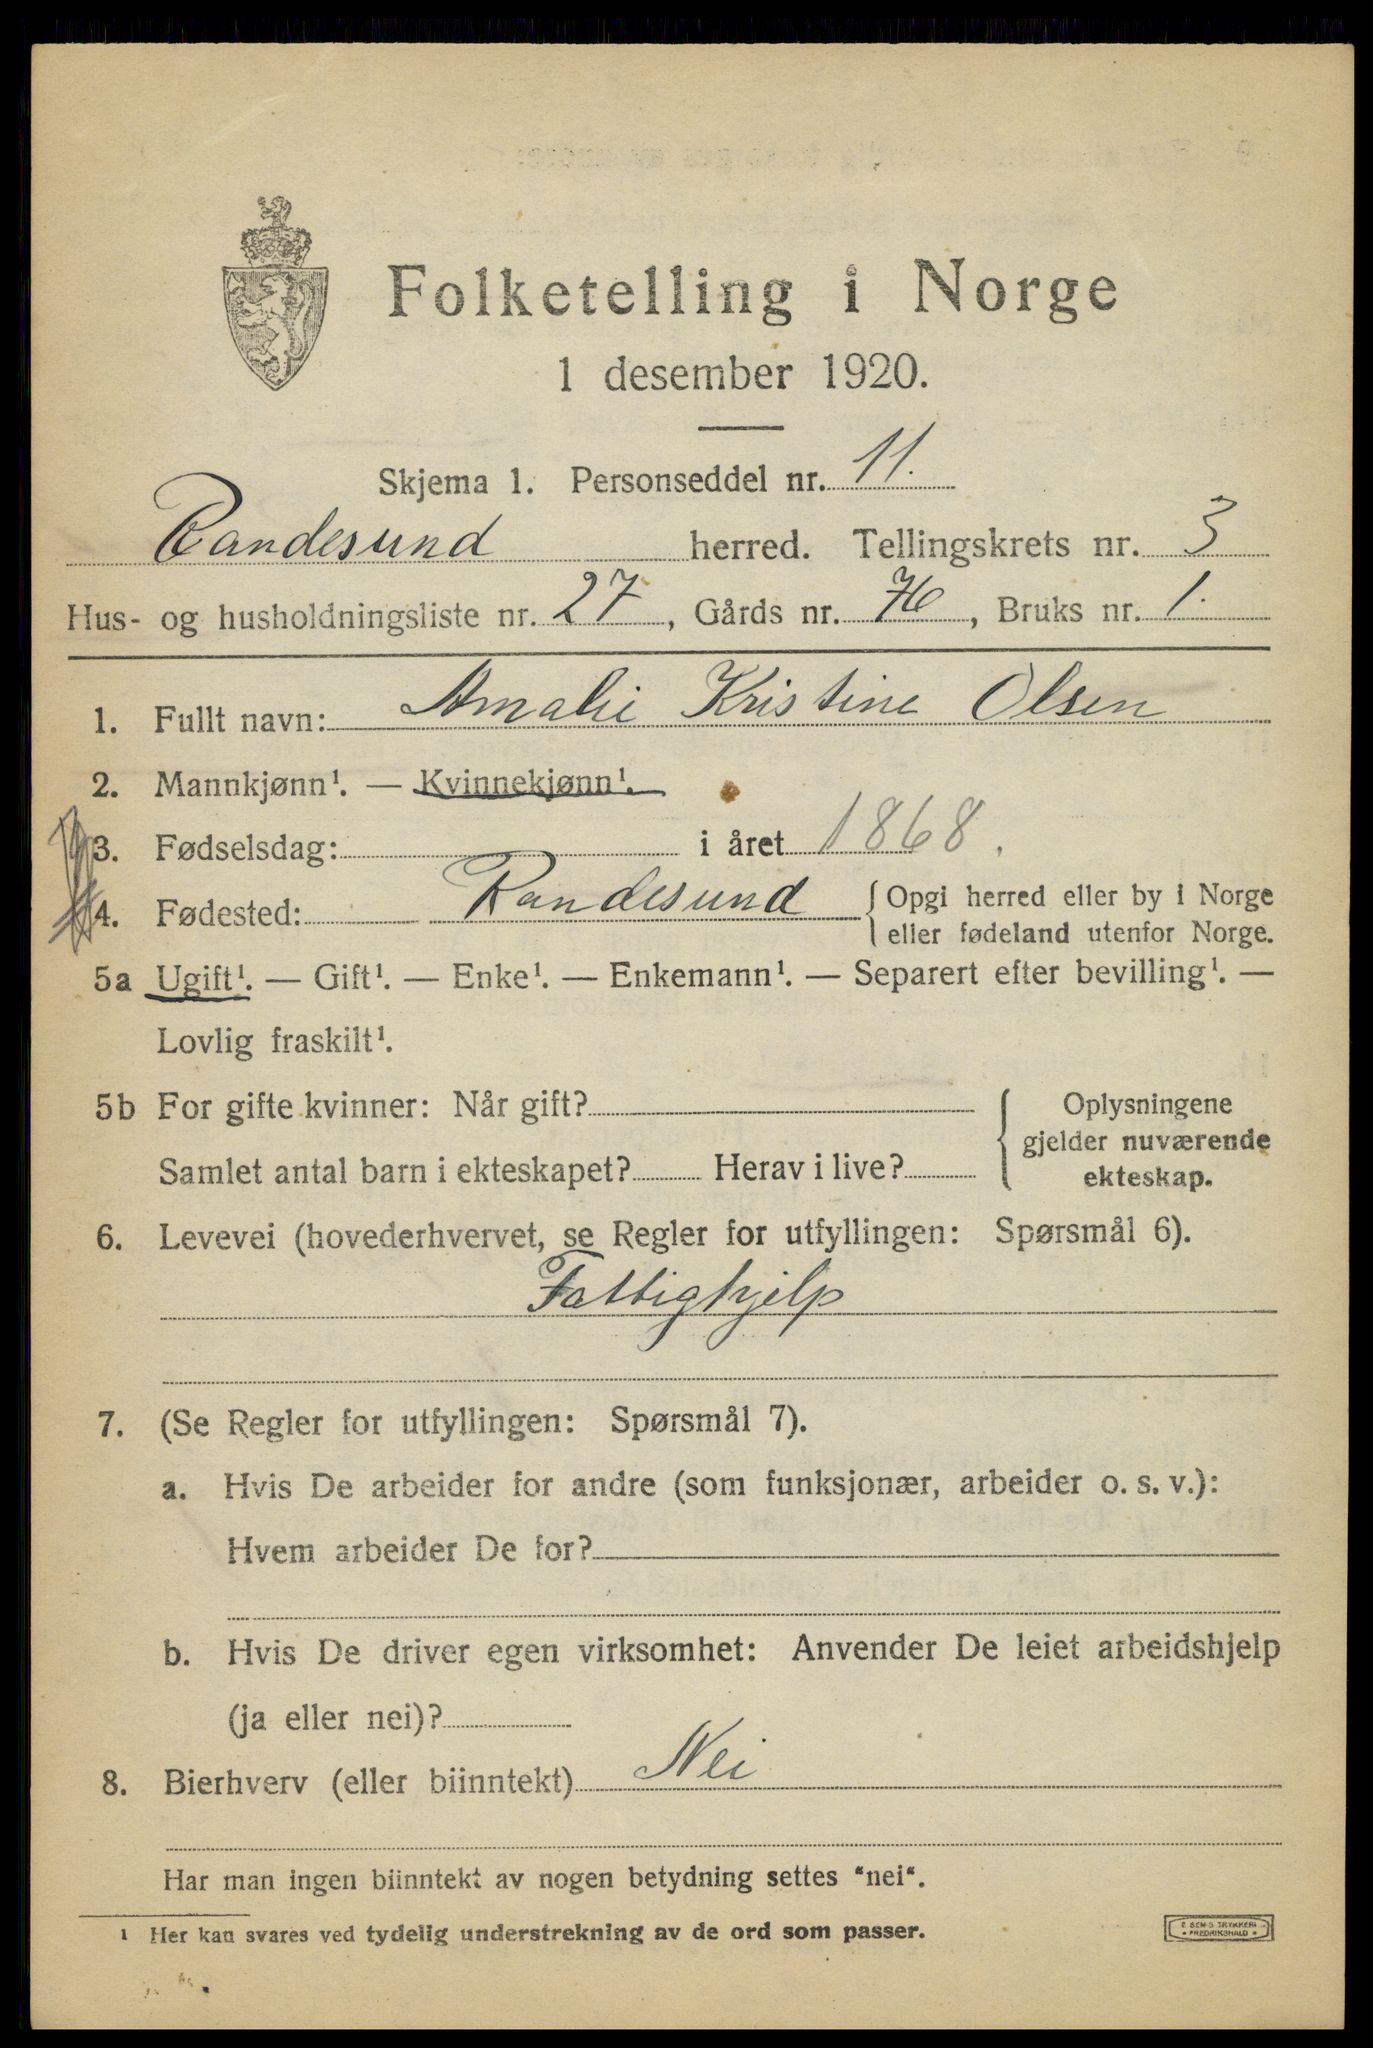 Folketelling i Norge
1 desember 1920.
Skjema 1. Personseddel nr. 11.
Randesund herred. Tellingskrets nr. 3
Hus- og husholdningsliste nr. 27, Gårds nr. 76, Bruks nr. 1.
1. Fullt navn: Amalie Kristine Olsen
2. Mannkjønn¹. — Kvinnekjønn¹.
3. Fødselsdag: i året 1868.
4. Fødested: Randesund { Opgi herred eller by i Norge
eller fødeland utenfor Norge.
5a Ugift¹. — Gift¹. — Enke¹. — Enkemann¹. — Separert efter bevilling¹. —
Lovlig fraskilt¹.
5b For gifte kvinner: Når gift? { Oplysningene
gjelder nuværende
Samlet antal barn i ekteskapet? Herav i live? ekteskap.
6. Levevei (hovederhvervet, se Regler for utfyllingen: Spørsmål 6).
Fattighjelp
7. (Se Regler for utfyllingen: Spørsmål 7).
a. Hvis De arbeider for andre (som funksjonær, arbeider o. s. v.):
Hvem arbeider De for?
b. Hvis De driver egen virksomhet: Anvender De leiet arbeidshjelp
(ja eller nei)?
8. Bierhverv (eller biinntekt) Nei
Har man ingen biinntekt av nogen betydning settes "nei".
¹ Her kan svares ved tydelig understrekning av de ord som passer.
E SEM'S TRYKKERI
FREDRIKSHALD